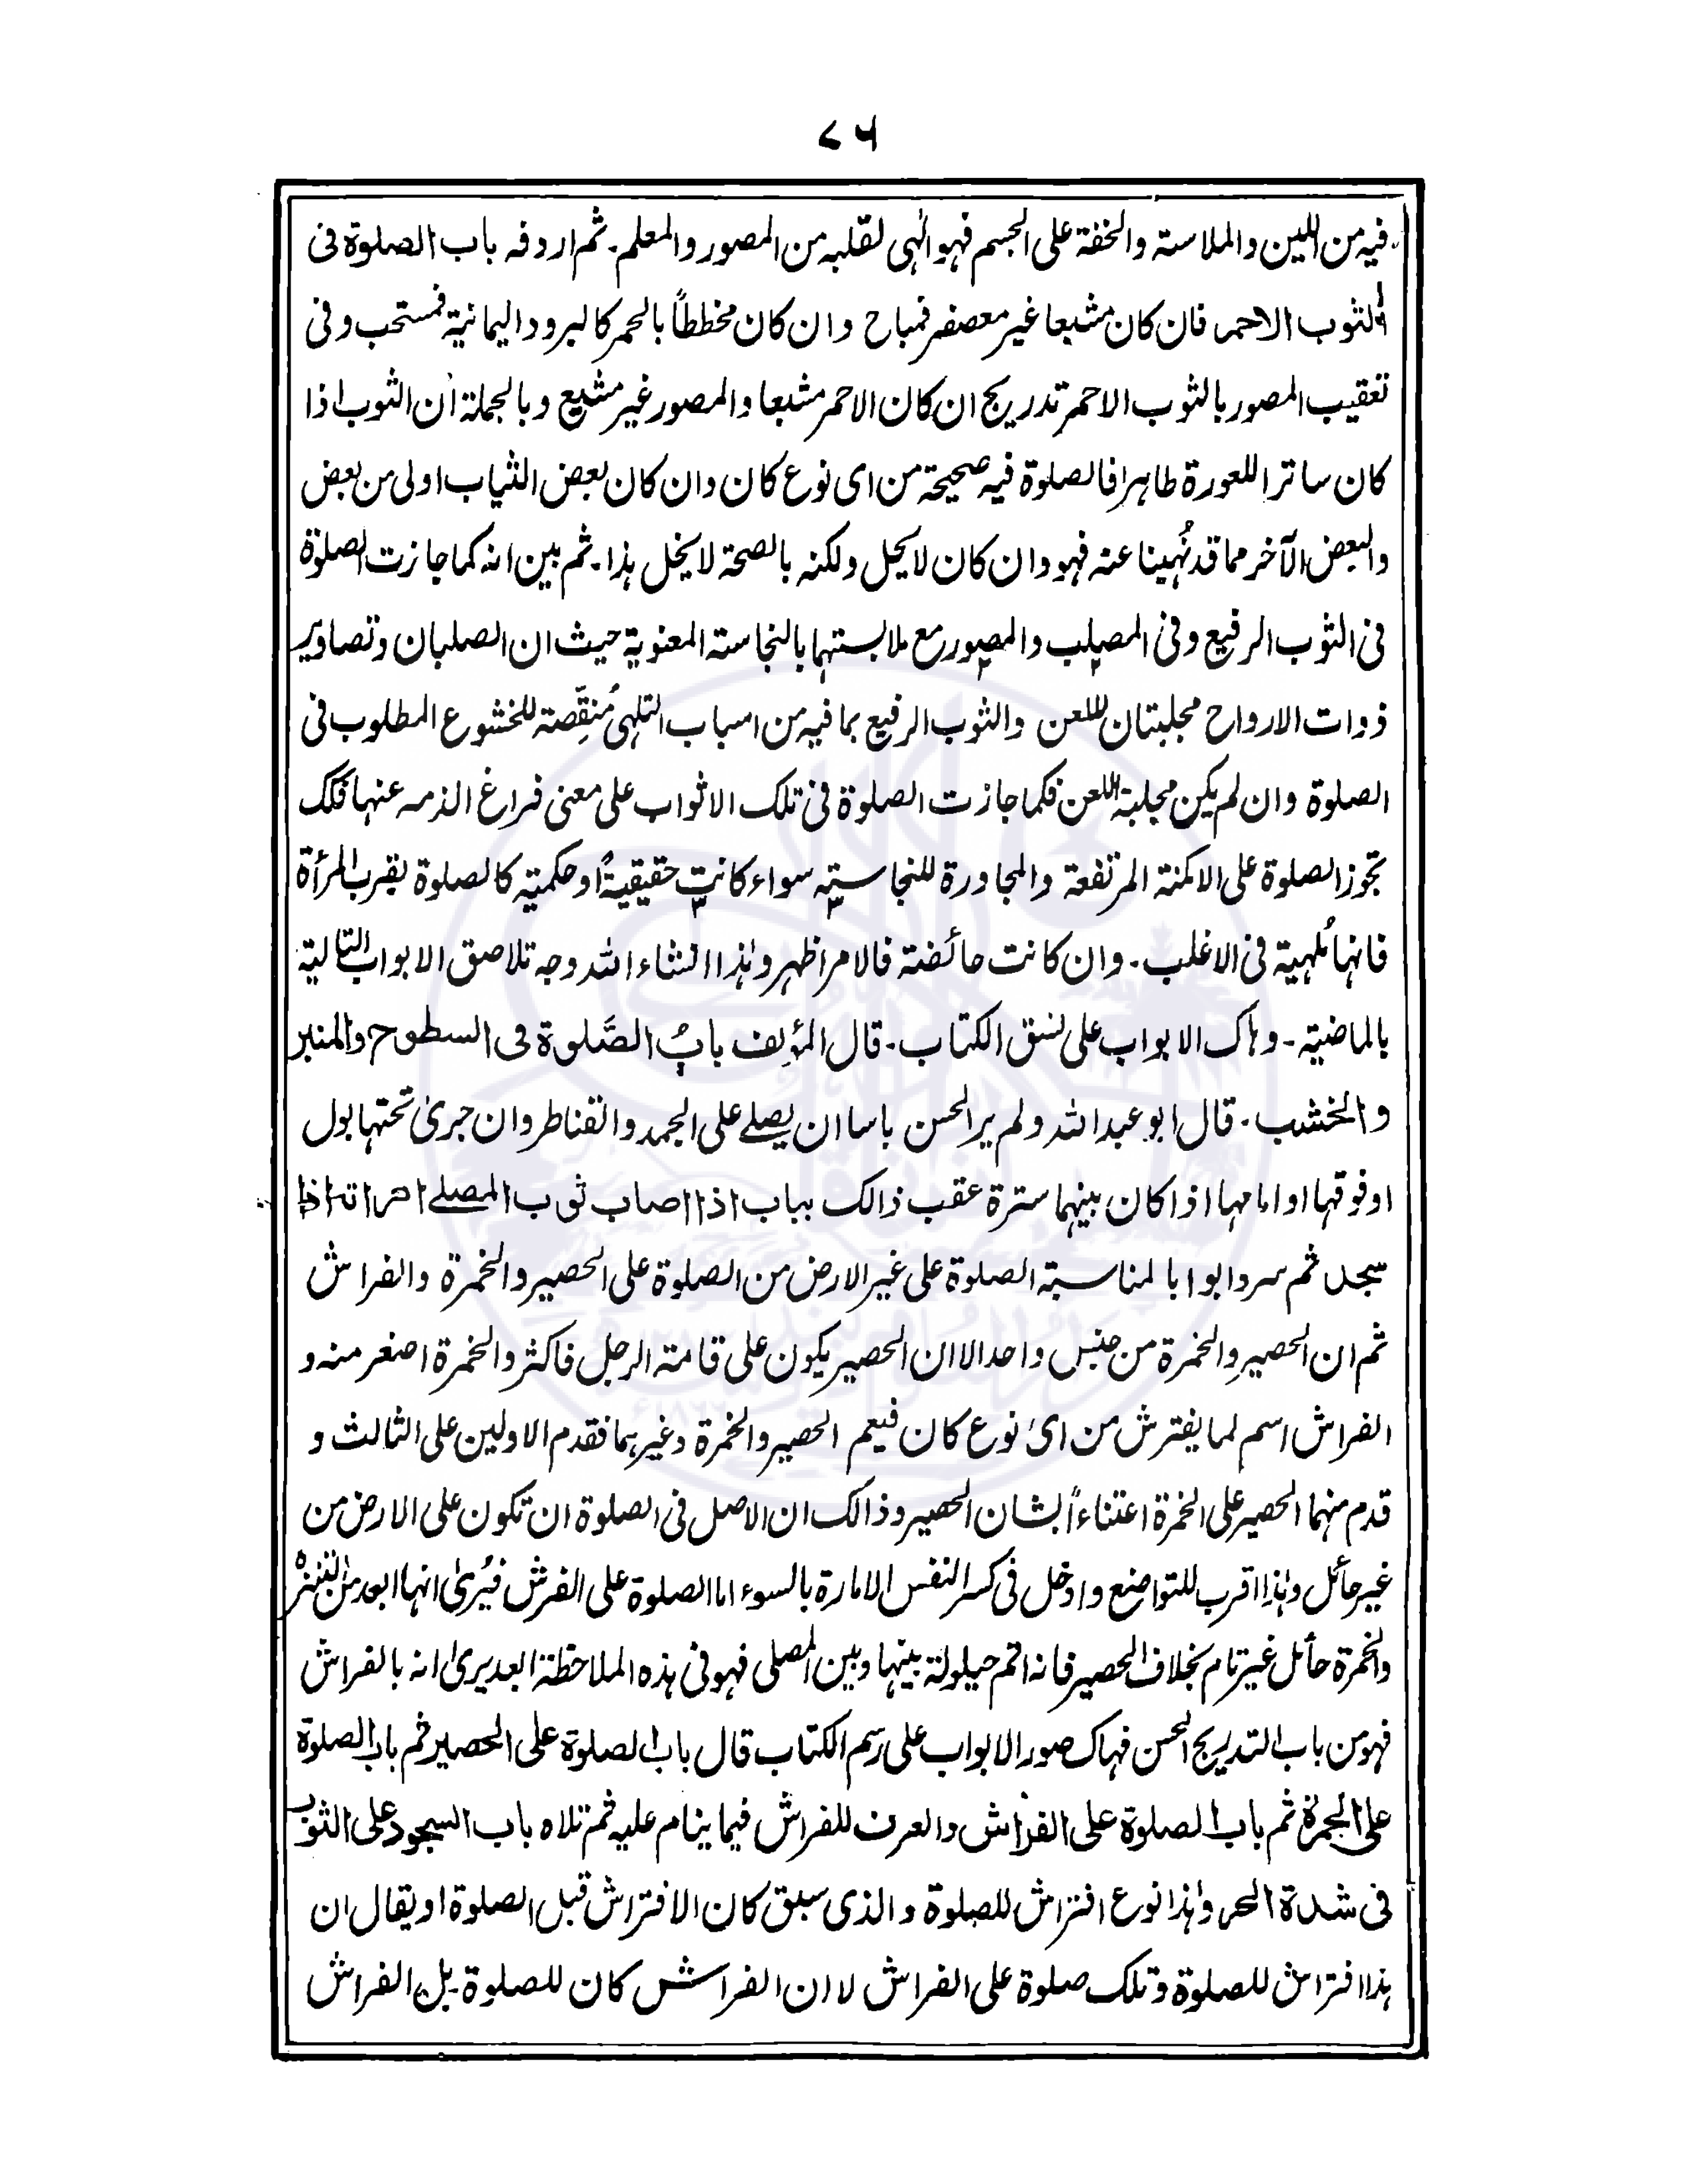 ۷۶
فيه من اللين والملاسته والخفة على الجسم فهو الٰهى لقلبه من المصور والمعلم. ثم اردفه باب الصلوة فى
الثوب الاحمر فان كان مشبعا غير معصفر فمباح وان كان مخططاً بالحمر كالبرود اليمانية فمستحب وفى
تعقيب المصور بالثوب الاحمر تدريج ان كان الاحمر مشبعا والمصور غير مشبع وبالجملة ان الثوب اذا
كان ساترا للعورة طاهرا فالصلوة فيه صحيحته من اى نوع كان وان كان بعض الثياب اولى من بعض
والبعض الآخر مما قد نُهينا عنه فهو وان كان لا يحل ولكنه بالصحة لا يخل هذا۔ ثم بين انه كما جازت الصلوة
فى الثوب الرفيع وفى المصلب والمصور مع ملابستهما بالنجاسته المعنوية حيث ان الصلبان وتصاوير
ذوات الارواح مجلبتان للعن والثوب الرفيع بما فيه من اسباب التلهى مُنقِّصته للخشوع المطلوب فى
الصلوة وان لم يكن مجلبة اللعن فكما جازت الصلوة فى تلك الاثواب على معنى فراغ الذمه عنها فكك
تجوز الصلوة على الامكنة المرتفعة والمجاورة للنجاسته سواء كانت حقيقيةً او حكميته كالصلوة بقرب المرأة
فانها مُلهية فى الاغلب۔ وان كانت حائضة فالامر اظهر وهٰذا انشاء الله وجه تلاصق الابواب التالية
بالماضية۔ وهاك الابواب على نسق الكتاب۔ قال المؤلف بابُ الصَّلوة فى السطوح والمنبر
والخشب۔ قال ابو عبد الله ولم ير الحسن باسا ان يصلے على الجمد والقناطر وان جرىٰ تحتها بول
او فوقها او امامها اذا كان بينهما سترة عقب ذالك بباب اذا اصاب ثوب المصلے امراته اذا
سجد ثم سرد ابوابا لمناسبته الصلوة على غير الارض من الصلوة على الحصير والخمرة والفراش
ثم ان الحصير والخمرة من جنس واحد الا ان الحصير يكون على قامته الرجل فاكثر والخمرة اصغر منه و
الفراش اسم لما يفترش من اىّ نوع كان فيعم الحصير والخمرة وغيرهما فقدم الاولين على الثالث و
قدم منهما الحصير على الخمرة اعتناءً بشان الحصير وذالك ان الاصل فى الصلوة ان تكون على الارض من
غير حائل وهٰذا اقرب للتواضع وادخل فى كسر النفس الامارة بالسوء اما الصلوة على الفرش فيُرىٰ انها ابعد من
والخمرة حائل غير تام بخلاف الحصير فانه اتم حيلولة بينها وبين المصلى فهو فى هذه الملاحظة ابعد يرىٰ انه بالفراش
فهو من باب التدريج الحسن فهاك صور الابواب على رسم الكتاب قال باب الصلوة على الحصير ثم باب الصلوة
على الخمرة ثم باب الصلوة على الفراش والعرف للفراش فيما ينام عليه ثم تلاه باب السجود على الثوب
فى شدة الحر وهٰذا نوع افتراش للصلوة والذى سبق كان الافتراش قبل الصلوة او يقال ان
هذا افتراش للصلوة وتلك صلوة على الفراش لا ان الفراش كان للصلوة۔ بل الفراش